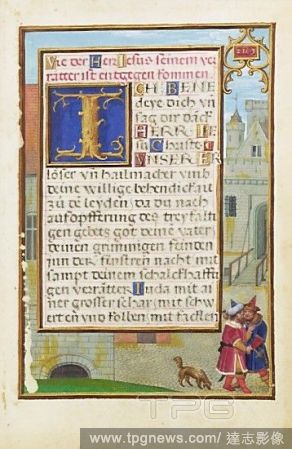 Wie der Her Iesus seinem ver
ratter ist entgegen kommen.
ICH BENE
deye dich vn̄
sag dir dāck
HERR IE
su Christe
VNSER ER
löser vn̄ hailmacher vmb
deine willige behendickait
zů de leyden da du nach
auf opfferung des trey falti
gen gebets got deine vater
deinen grim̄igen feinden
jnn der finstren nacht mit
sampt deinem schalckhaffti
gen verräter Iuda mit ai
ner grosser schar (mit schw
ert en vnd kolben (mit facklen
TPG
www.tpgnews.com / 達志影像